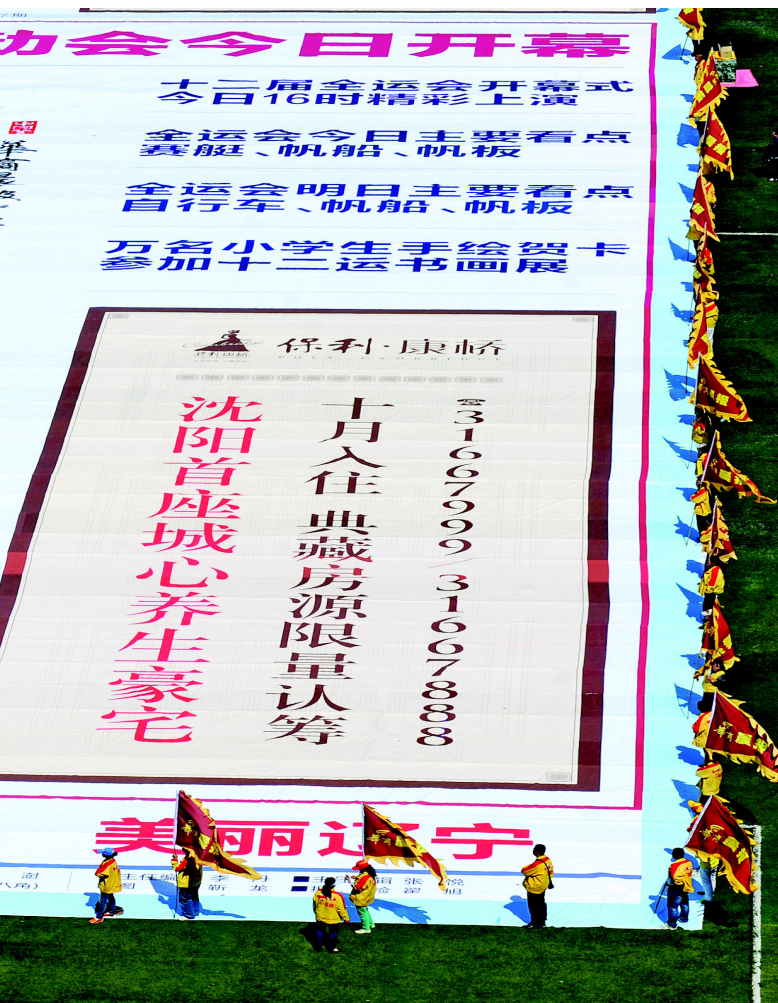 动会今日开幕
十二届全运会开幕式
今日16时精彩上演
全运会今日主要看点
赛艇、帆船、帆板
全运会明日主要看点
自行车、帆船、帆板
万名小学生手绘贺卡
参加十二运书画展
保利康桥
保利·康桥
POLY CAMBRIDGE
沈阳首座城心养生豪宅
十月入住 典藏房源限量认筹
☎31667999/31667888
美丽辽宁